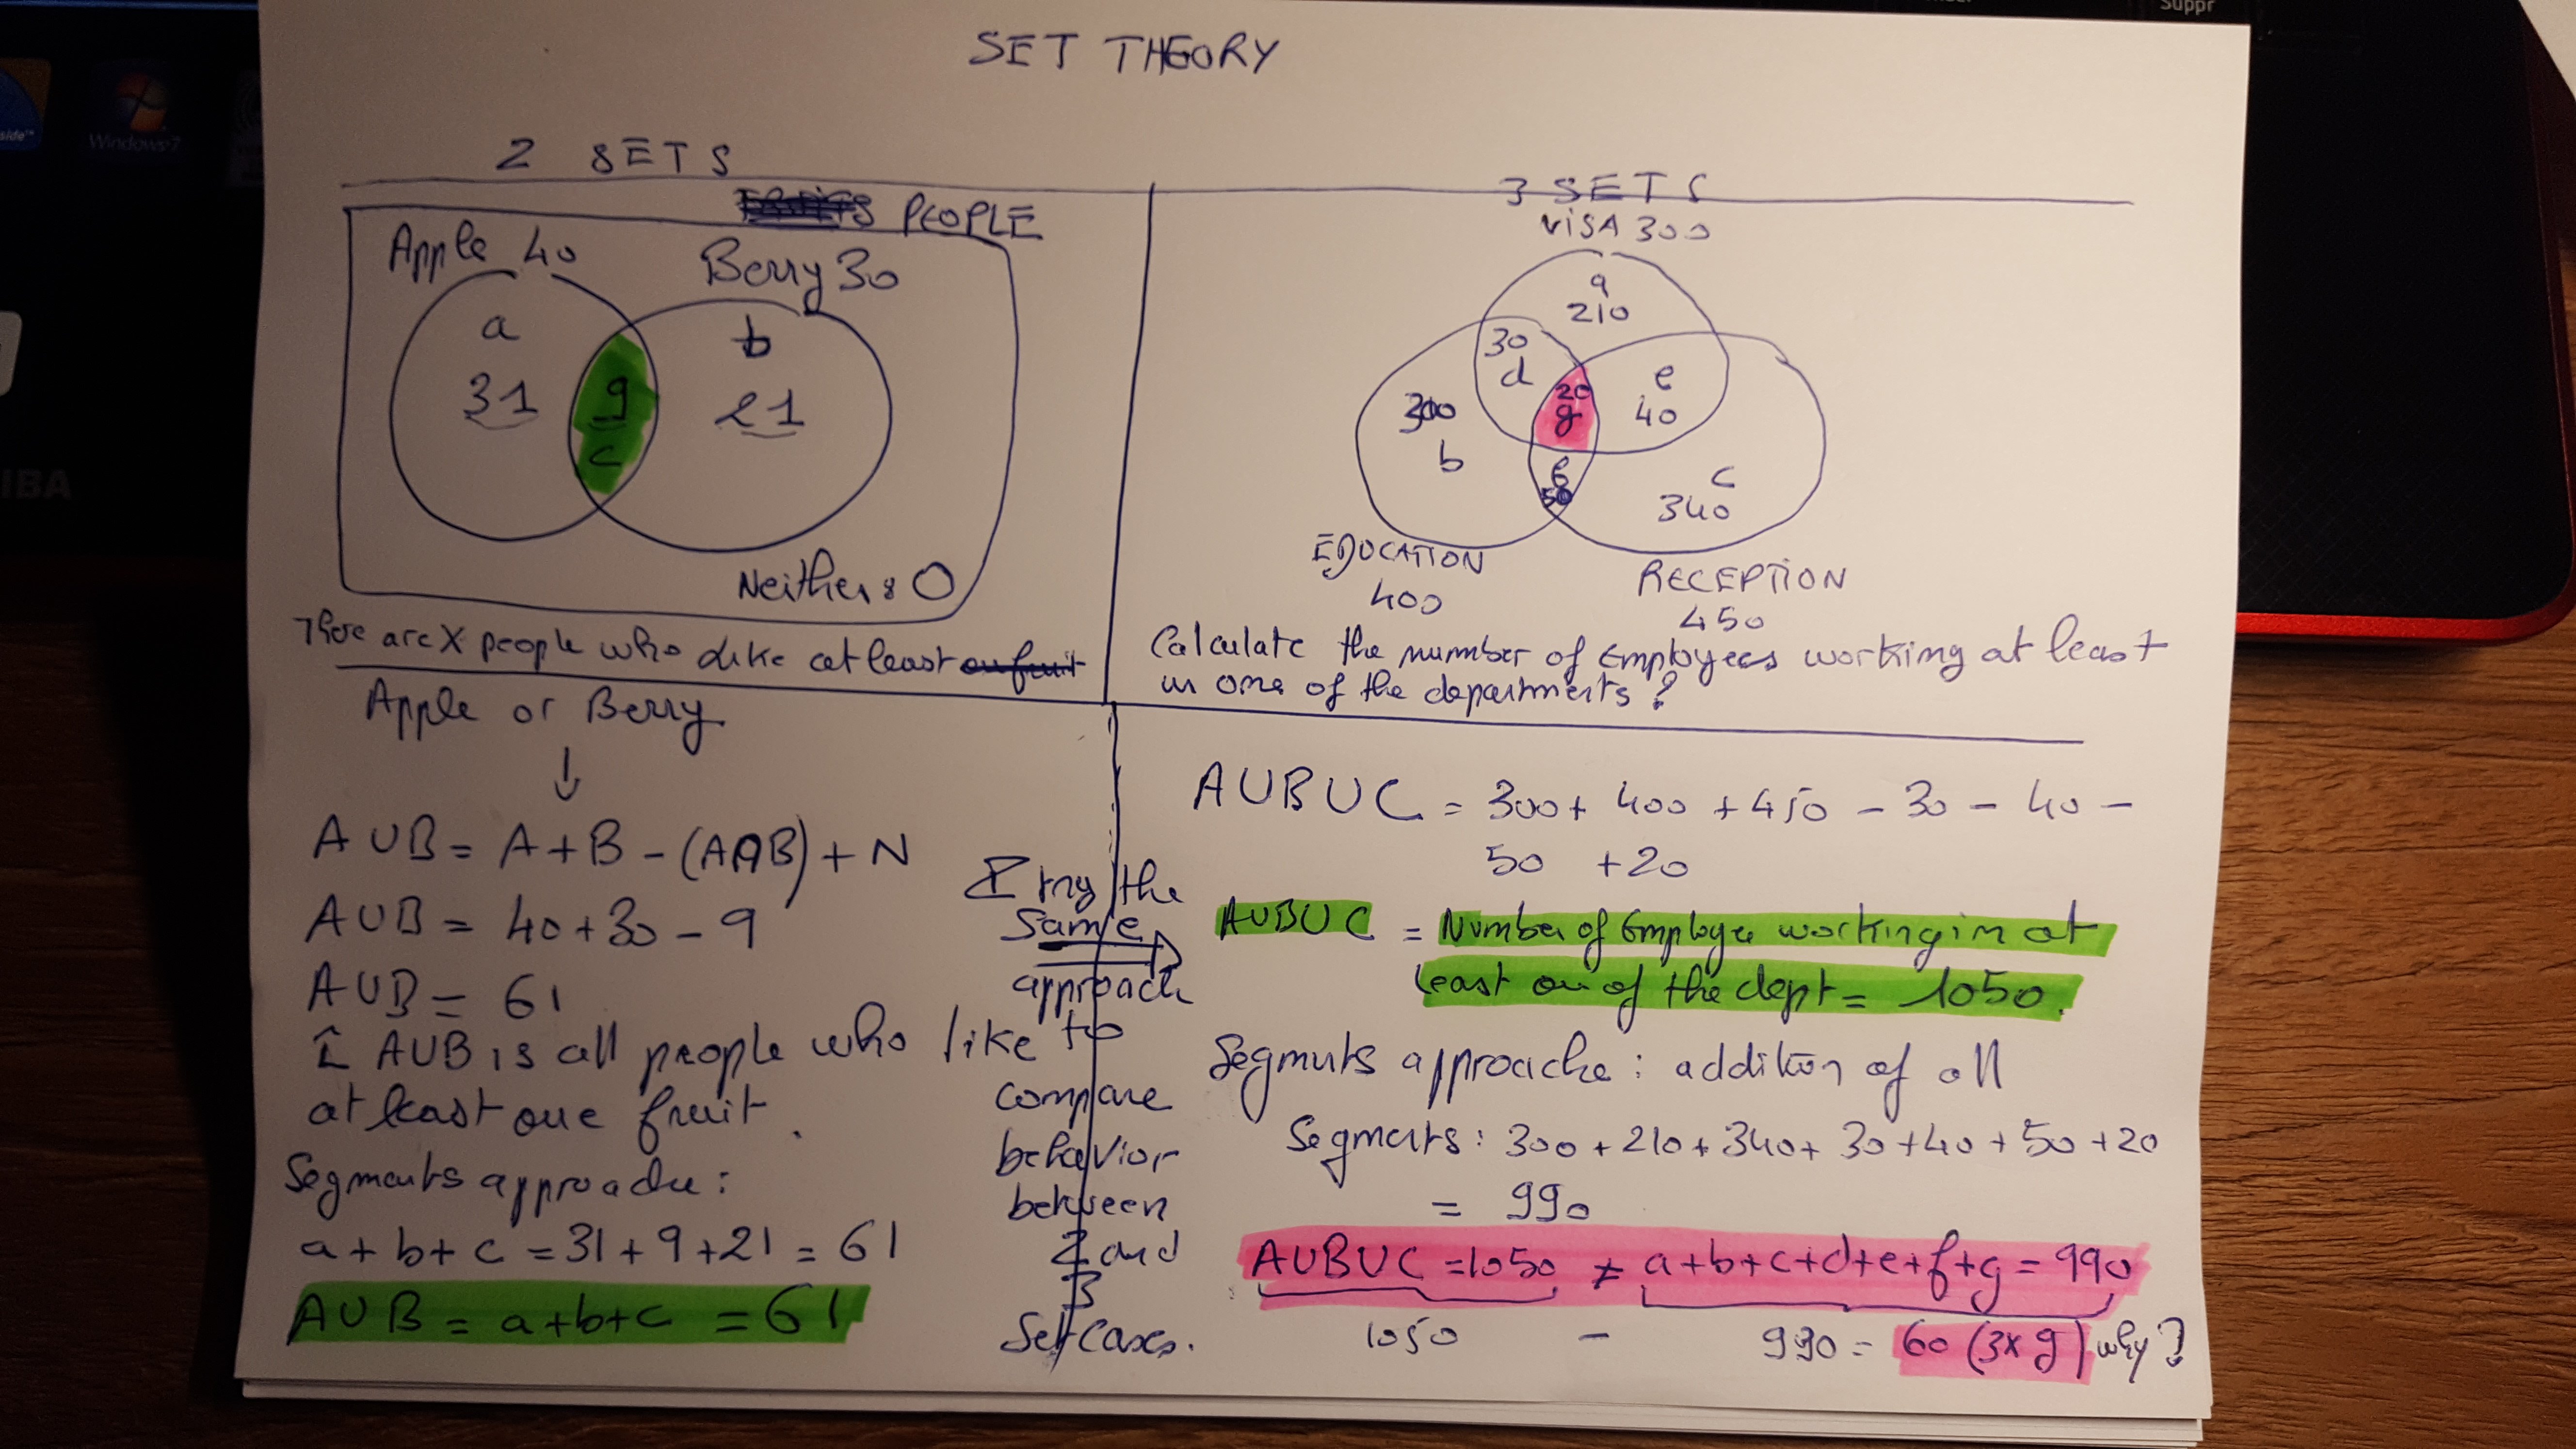 Suppr
side™
Windows 7
IBA
SET THEORY
2 SETS
PEOPLE
Apple 40
Berry 30
a
31
9
c
b
21
Neither : 0
There are X people who like at least on fruit
Apple or Berry
↓
AUB = A + B - (A∩B) + N
AUB = 40 + 30 - 9
AUB = 61
AUB is all people who like
at least one fruit.
Segments approache :
a + b + c = 31 + 9 + 21 = 61
AUB = a+b+c = 61
I try the
same
approach
to
compare
behavior
between
2 and
3
Set cases.
3 SETS
VISA 300
a
210
30
d
20
g
e
40
300
b
f
50
c
340
EDUCATION
400
RECEPTION
450
Calculate the number of Employees working at least
in one of the departments ?
AUBUC = 300 + 400 + 450 - 30 - 40 -
50 + 20
AUBUC = Number of Employee working in at
least on of the dept = 1050.
Segments approache : addition of all
Segments : 300 + 210 + 340 + 30 + 40 + 50 + 20
= 990
AUBUC = 1050 ≠ a+b+c+d+e+f+g = 990
1050 - 990 = 60 (3x g) why ?